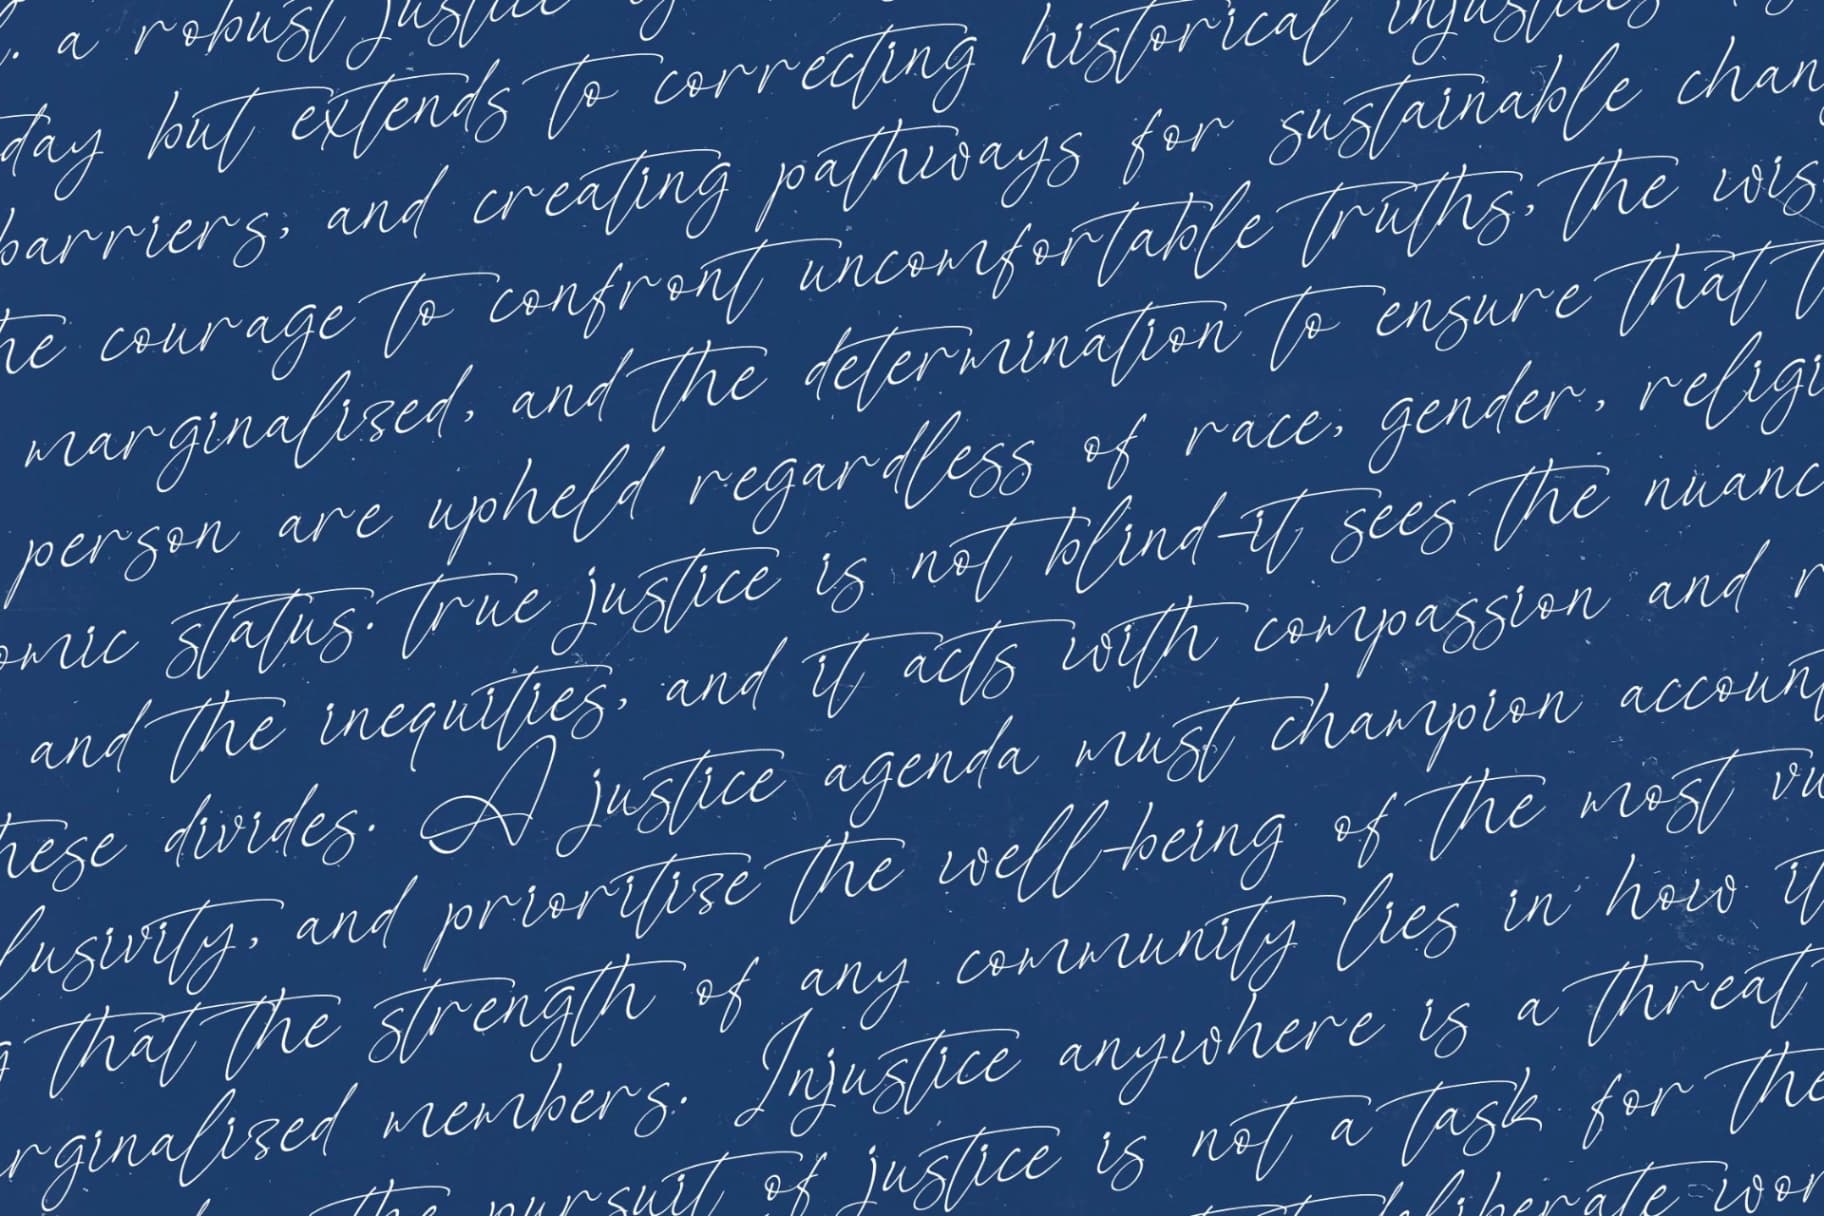 . a robust justice
day but extends to correcting historical injustices
barriers, and creating pathways for sustainable chan
he courage to confront uncomfortable truths, the wis
marginalised, and the determination to ensure that t
person are upheld regardless of race, gender, religi
omic status. true justice is not blind-it sees the nuanc
and the inequities, and it acts with compassion and r
hese divides. A justice agenda must champion account
lusivity, and prioritise the well-being of the most vu
g that the strength of any community lies in how it
rginalised members. Injustice anywhere is a threat
the pursuit of justice is not a task for the
deliberate wor